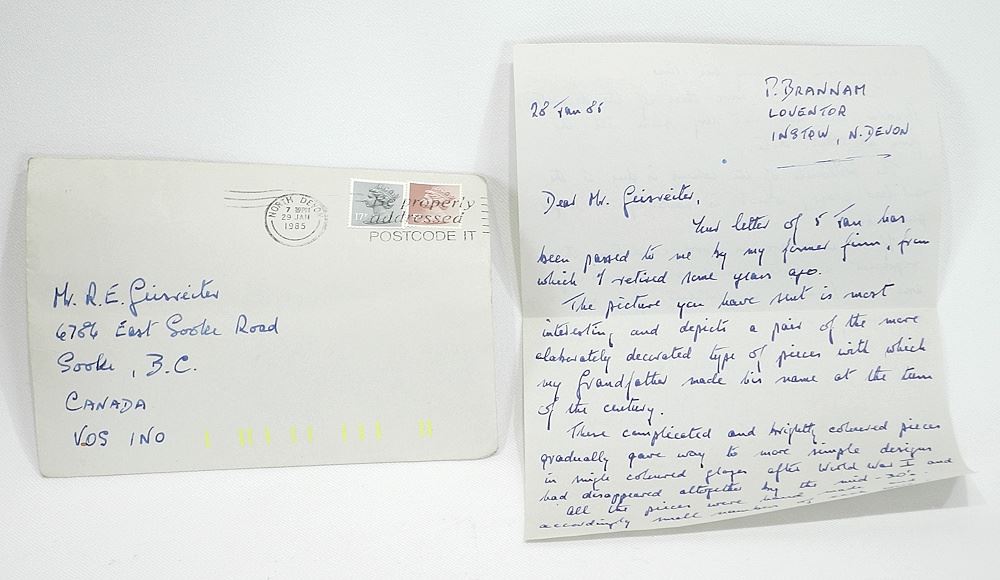 NORTH DEVON
7 PM
29 JAN
1985
17P
Be properly
addressed
POSTCODE IT
Mr. R. E. Geisreiter
6786 East Sooke Road
Sooke, B.C.
CANADA
V0S 1N0
28 Jan 85
P. BRANNAM
LOVENTOR
INSTOW, N. DEVON
Dear Mr. Geisreiter,
Your letter of 5 Jan has
been passed to me by my former firm, from
which I retired some years ago.
The picture you have sent is most
interesting and depicts a pair of the more
elaborately decorated type of pieces with which
my Grandfather made his name at the turn
of the century.
These complicated and brightly coloured pieces
gradually gave way to more simple designs
in single coloured glazes after World War I and
had disappeared altogether by the mid-30's.
All the pieces were hand made and
accordingly small numbers of